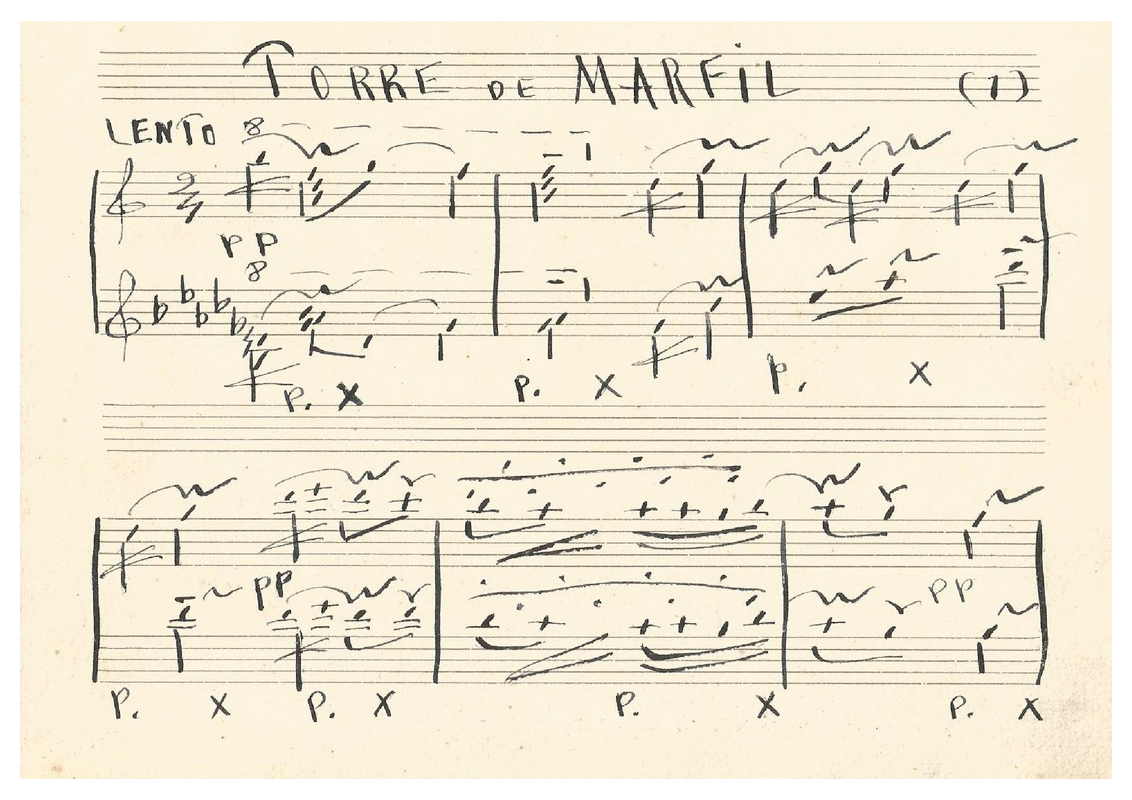 TORRE DE MARFIL (1)
LENTO 8
2
4
PP
8
P. X P. X P. X
PP
PP
P. X P. X P. X P. X